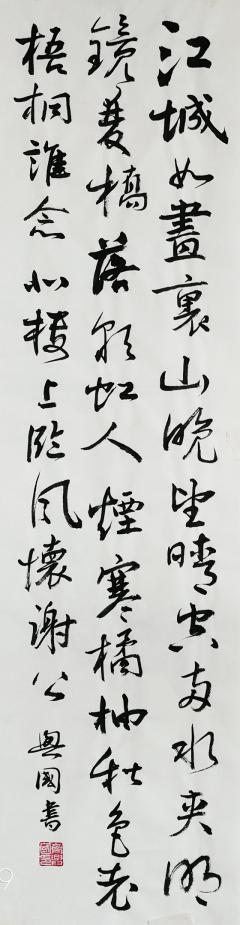 江城如畫裏山晚望晴空兩水夾明
鏡雙橋落彩虹人煙寒橘柚秋色老
梧桐誰念北樓上臨風懷謝公
興國書